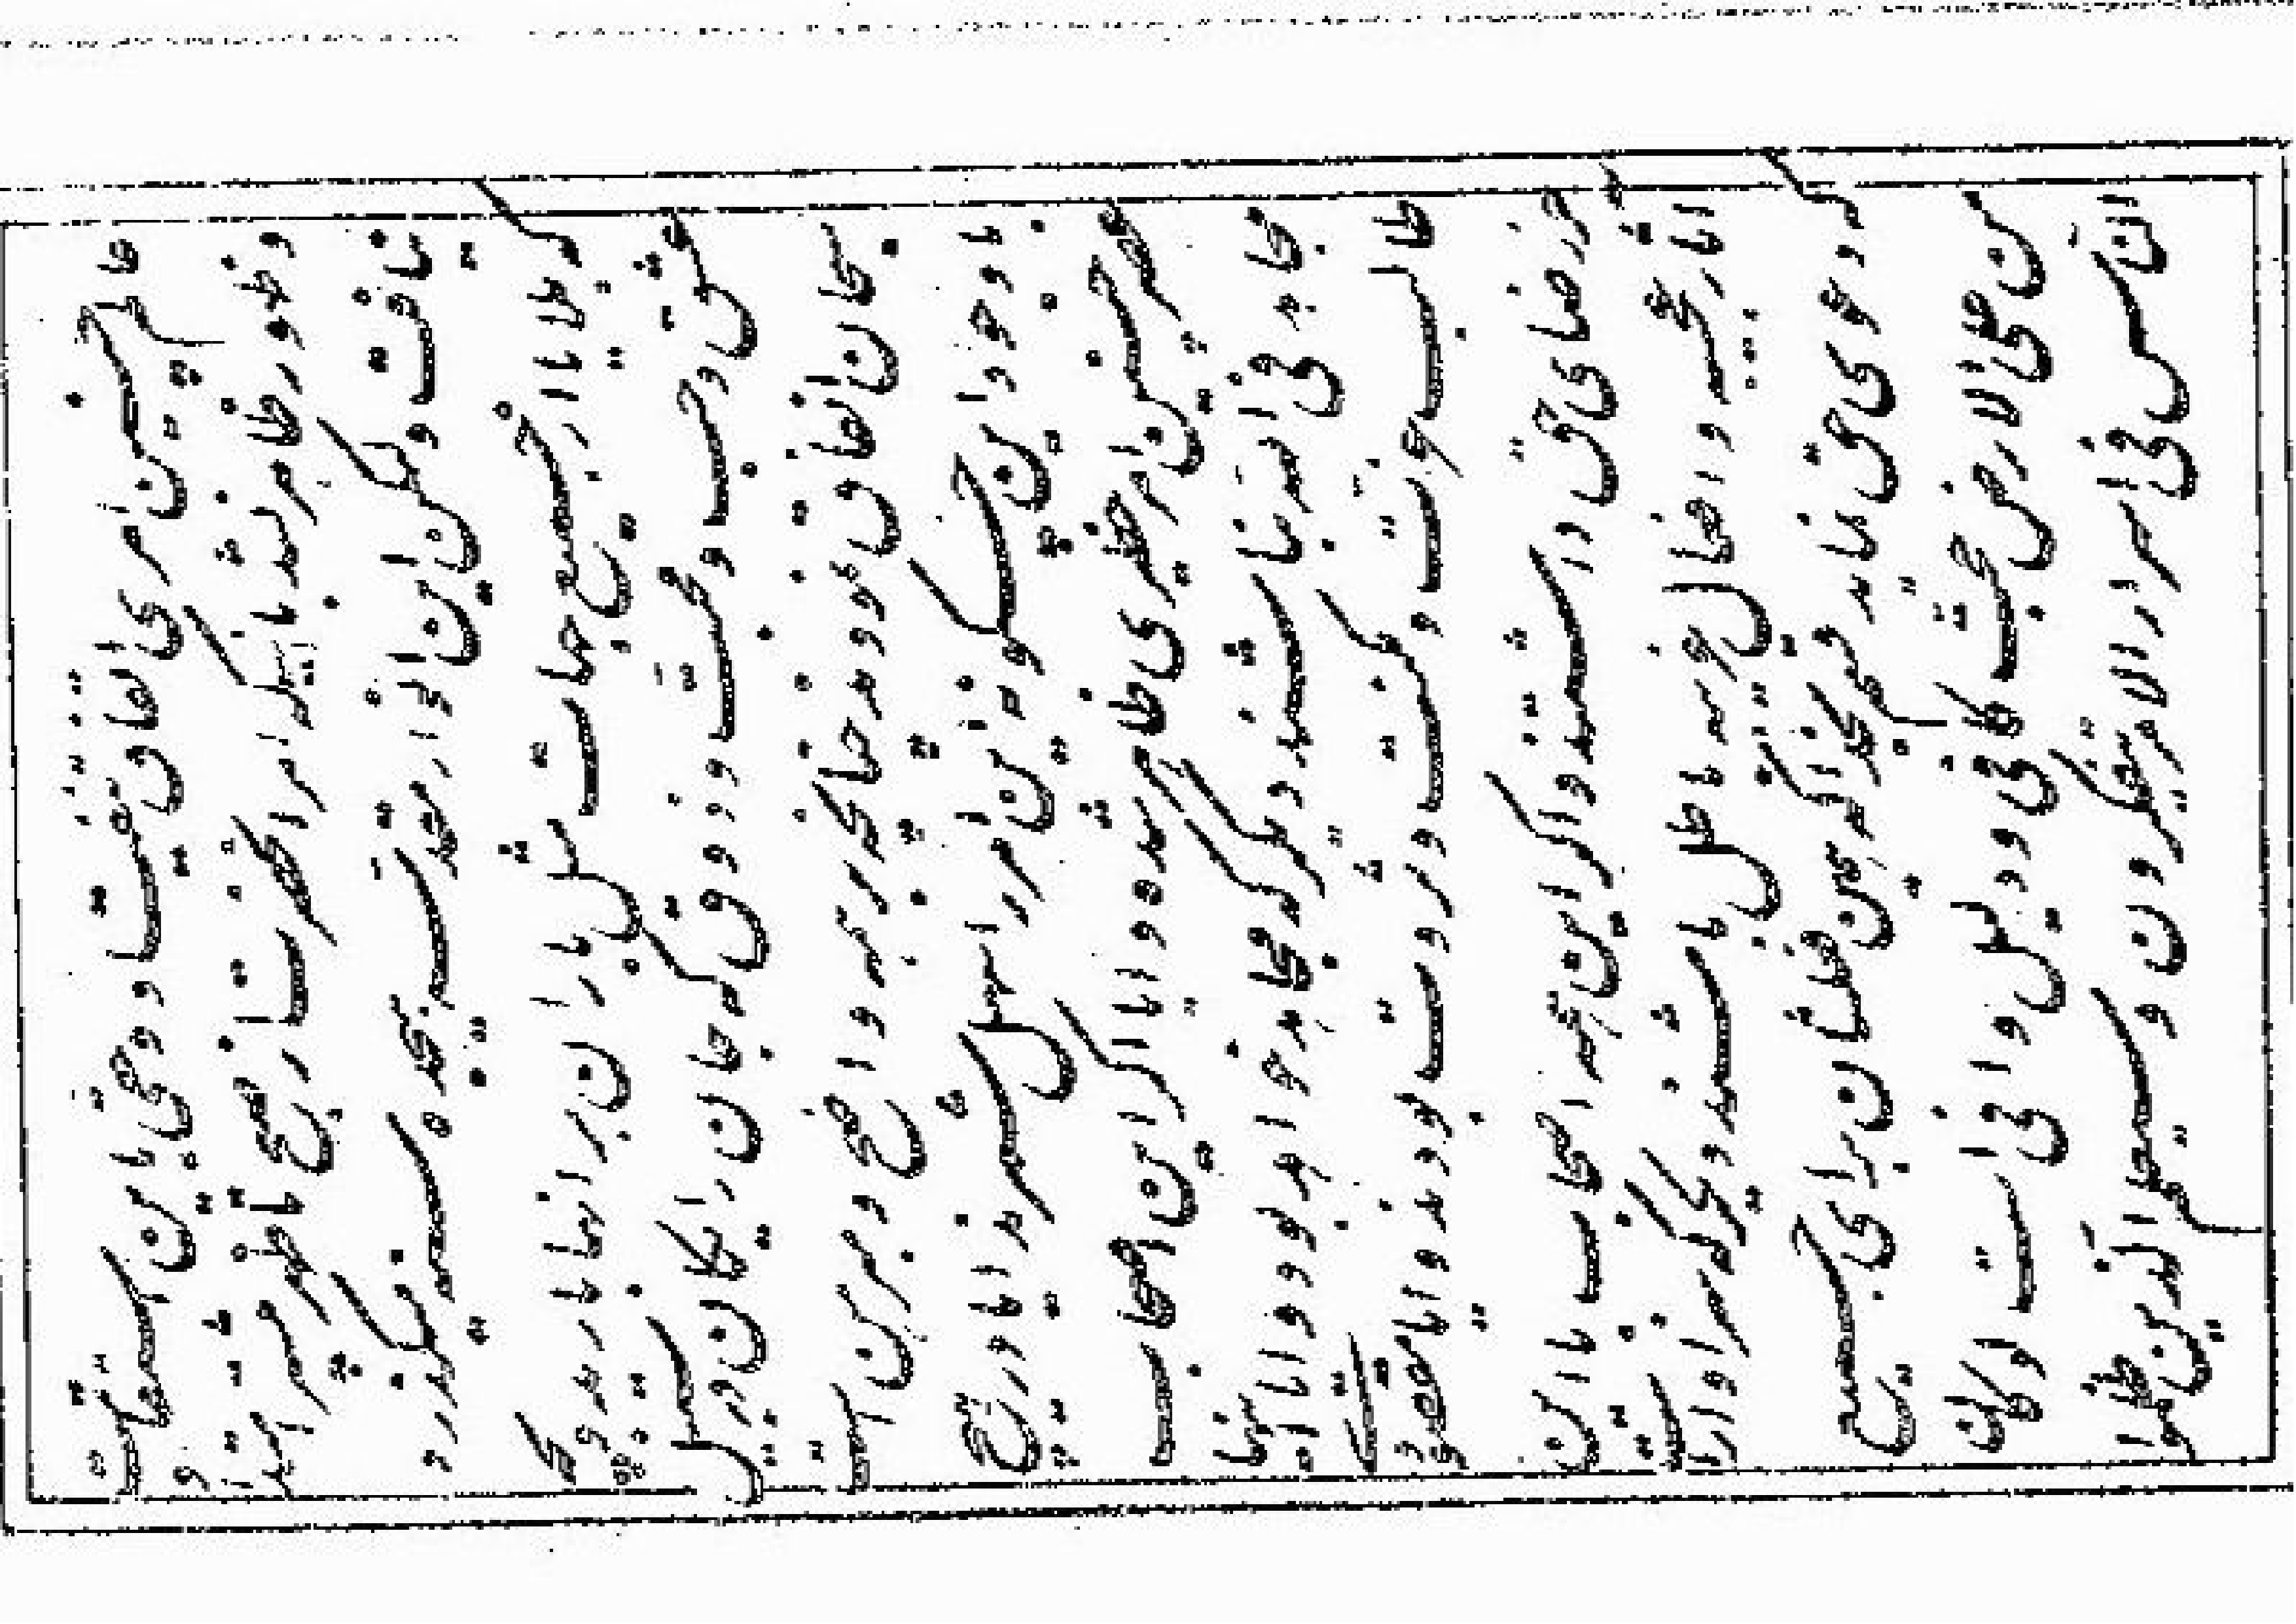 عالم چنین امری اتفاق نیفتاد و حقی باین استقامت
و ظهور ظاهر نشد با اینکه امر انحضرت از صبح تا ظهر بیشتر امتداد
نیافت ولکن این انوار مقدسه هیجده سنه میگذرد
که بلایا از جمیع جهات مثل باران بر انها بارید و بچه
عشق و حب و محبت و ذوق که جان رایگان در سبیل
سبحان انفاق نمودند چنانچه بر همه واضح و مبرهن است
با وجود این چگونه این امر را سهل شمرند ایا در هیچ
عصر چنین امر خطیری ظاهر شده و ایا اگر این اصحاب
مجاهد فی الله نباشند دیگر که مجاهد خواهد بود و ایا اینها
طالب عزت و مکنت و ثروت بودند و ایا مقصدی
جز رضای حق داشتند و اگر این همه اصحاب با این
اثار عجیبه و افعال غریبه باطل باشند دیگر که سزاوار است
که دعوی حق نماید قسم بخدا که همین فعلشان برای جمیع
من علی الارض حجت کافی و دلیل وافی است لو کان
الناس فی اسرار الامر یتفکرون و سیعلم الذین ظلموا